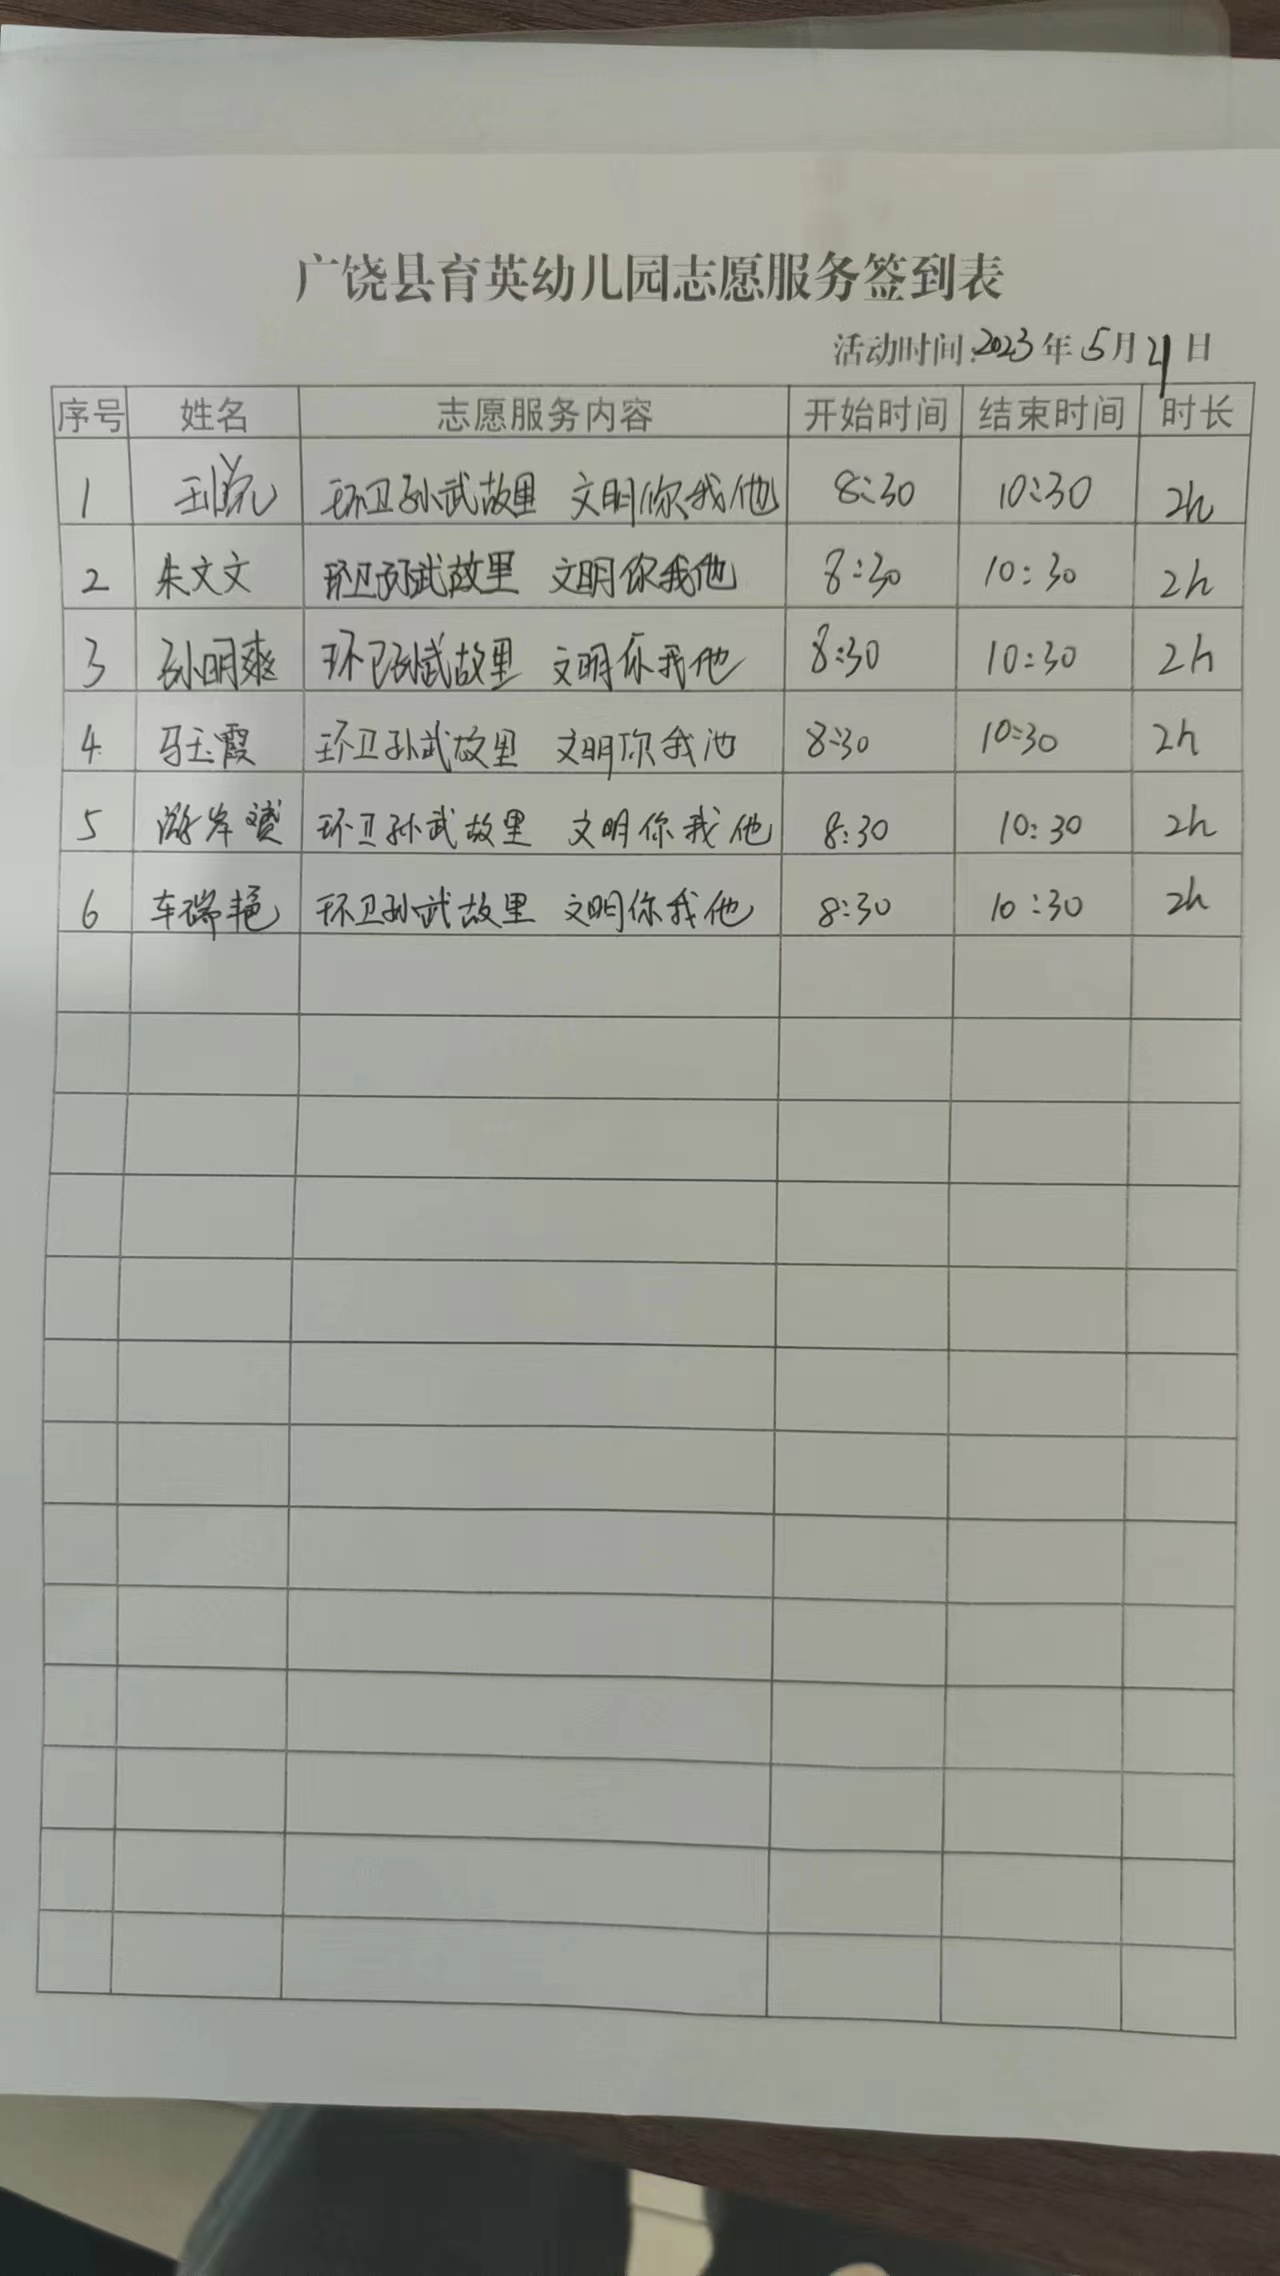 广饶县育英幼儿园志愿服务签到表
活动时间:2023年5月21日
序号 姓名 志愿服务内容 开始时间 结束时间 时长
1 王悦 环卫孙武故里 文明你我他 8:30 10:30 2h
2 朱文文 环卫孙武故里 文明你我他 8:30 10:30 2h
3 孙明爽 环卫孙武故里 文明你我他 8:30 10:30 2h
4 马玉霞 环卫孙武故里 文明你我他 8:30 10:30 2h
5 环卫孙武故里 文明你我他 8:30 10:30 2h
6 车瑞艳 环卫孙武故里 文明你我他 8:30 10:30 2h